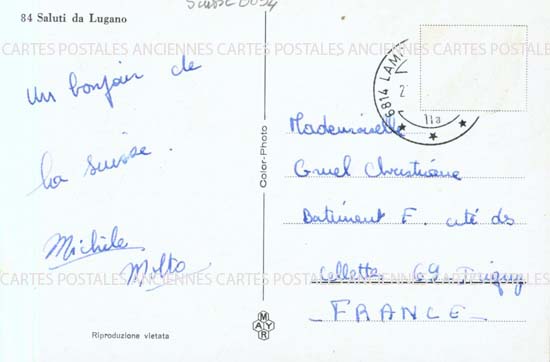 Suisse
84 Saluti da Lugano
CARTES POSTALES ANCIENNES CARTES POSTALES ANCIENNES CARTES POSTALES
6814 LAM
2
11a
Un bonjour de
la suisse.
Michèle
Molto
Color-Photo
Mademoiselle
Gruel Christiane
Batiment F. cité des
Collettes 69
FRANCE
CARTES POSTALES ANCIENNES CARTES POSTALES ANCIENNES CARTES POSTALES
Riproduzione vietata
MAYR